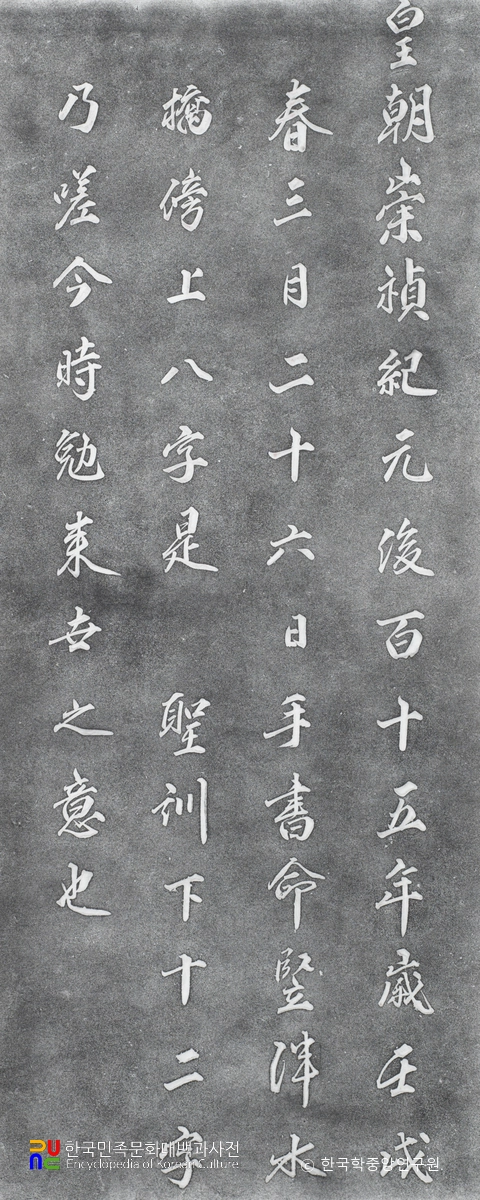 皇朝崇禎紀元後百十五年歲壬戌
春三月二十六日手書命竪泮水
橋傍上八字是 聖訓下十二字
乃嗟今時勉來世之意也
한국민족문화대백과사전
Encyclopedia of Korean Culture
© 한국학중앙연구원